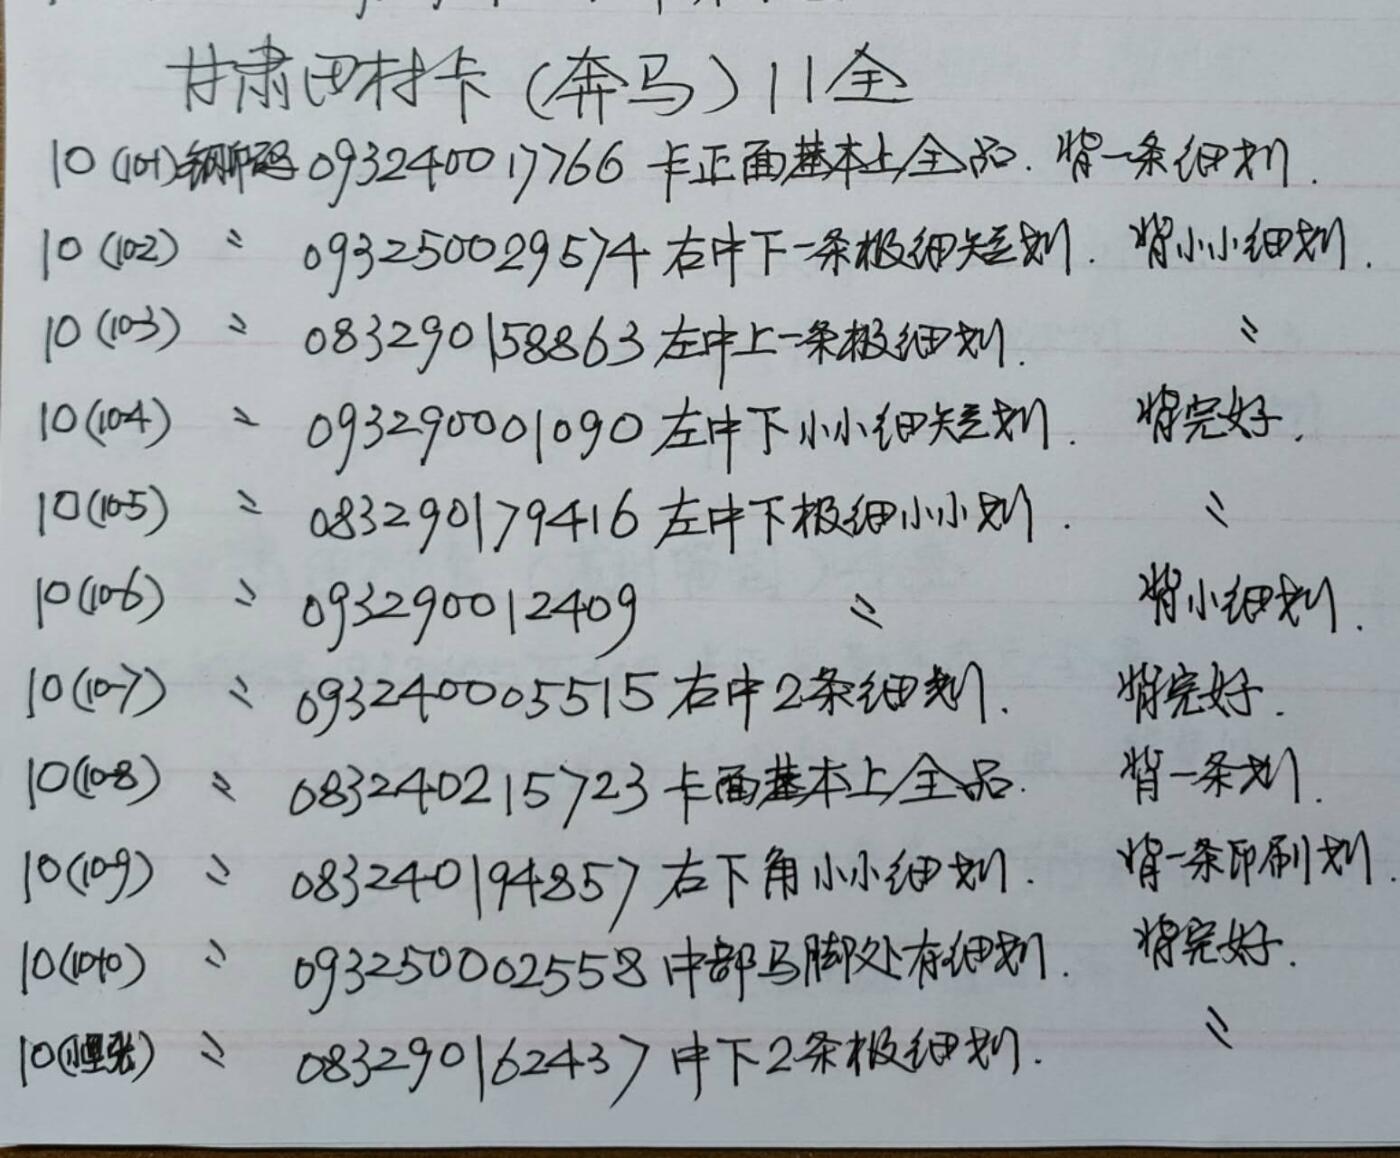 甘肃田村卡(奔马)11全
10(10-1)钢印码 093240017766 卡正面基本上全品. 背一条细划.
10(10-2) 〃 093250029574 右中下一条极细短划. 背小小细划.
10(10-3) 〃 083290158863 左中上一条极细划. 〃
10(10-4) 〃 093290001090 左中下小小细短划. 背完好.
10(10-5) 〃 083290179416 左中下极细小小划. 〃
10(10-6) 〃 093290012409 〃 背小细划.
10(10-7) 〃 093240005515 右中2条细划. 背完好.
10(10-8) 〃 083240215723 卡面基本上全品. 背一条划.
10(10-9) 〃 083240194857 右下角小小细划. 背一条印刷划.
10(10-10) 〃 093250002558 中部马脚处有细划. 背完好.
10 〃 083290162437 中下2条极细划. 〃